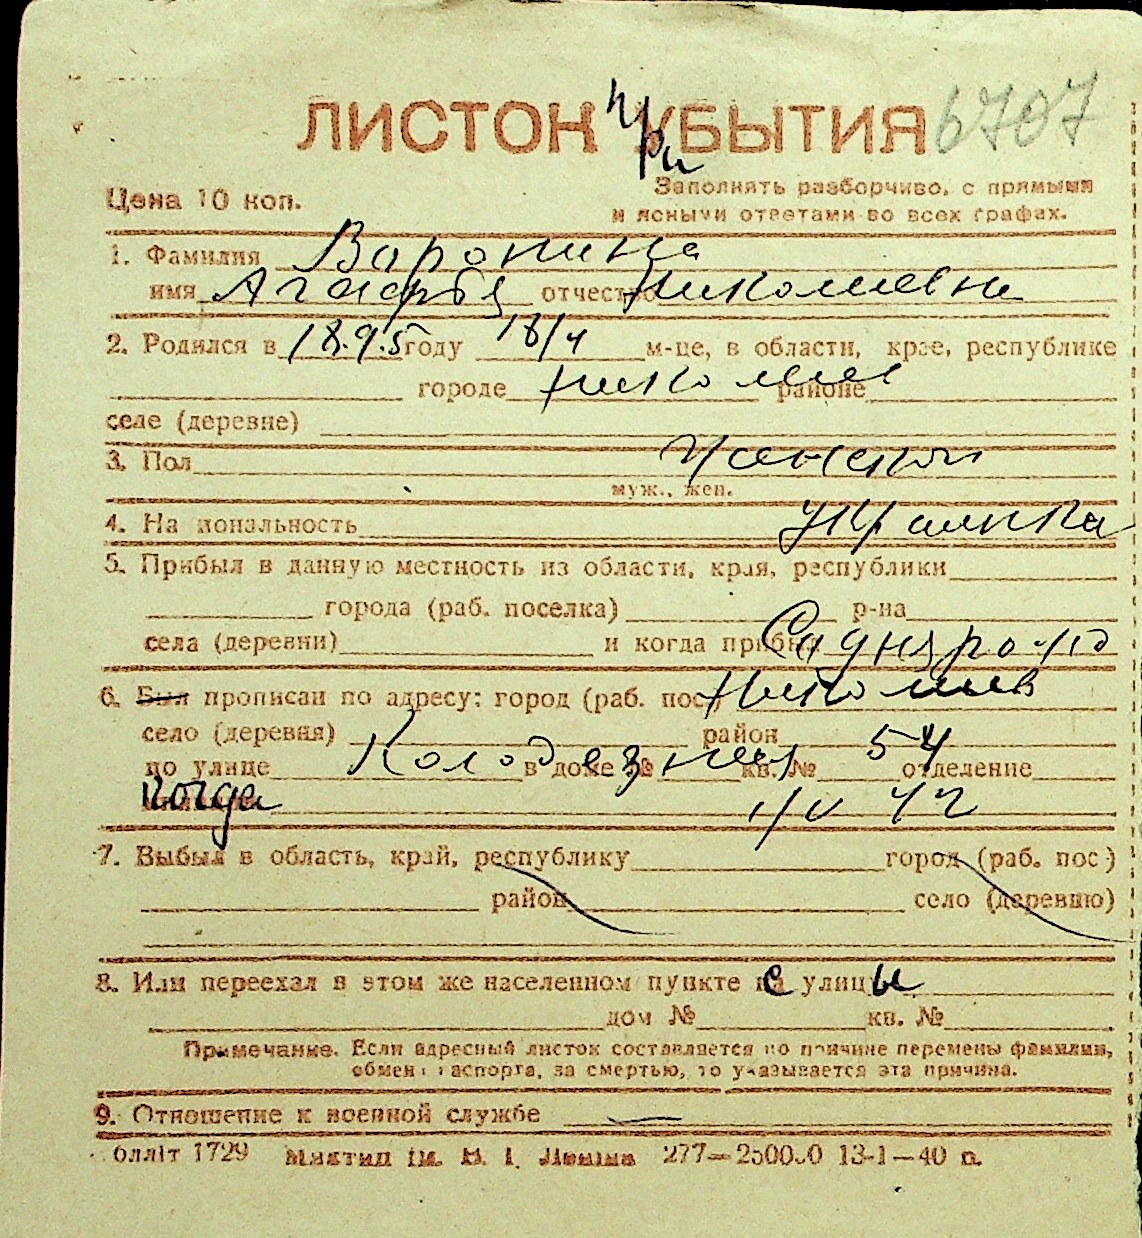 ЛИСТОК УБЫТИЯ при 6707
Цена 10 коп. Заполнять разборчиво, с прямыми
и ясными ответами во всех графах.
1. Фамилия Воронина
имя Агафья отчество Николаевна
2. Родился в 1895 году 18/4 м-це, в области, крае, республике
городе Николаев районе
селе (деревне)
3. Пол Женский
муж., жен.
4. Национальность Украинка
5. Прибыл в данную местность из области, края, республики
города (раб. поселка) р-на
села (деревни) и когда прибыл
6. Был прописан по адресу: город (раб. пос.) Николаев
село (деревня) район
по улице Колодезная в доме № кв. № 54 отделение
когда
7. Выбыл в область, край, республику город (раб. пос)
район село (деревню)
8. Или переехал в этом же населенном пункте с улицы
дом № кв. №
Примечание. Если адресный листок составляется по причине перемены фамилии,
обмена паспорта, за смертью, то указывается эта причина.
9. Отношение к военной службе —
1729 В. І. Леніна 13-1—40 р.